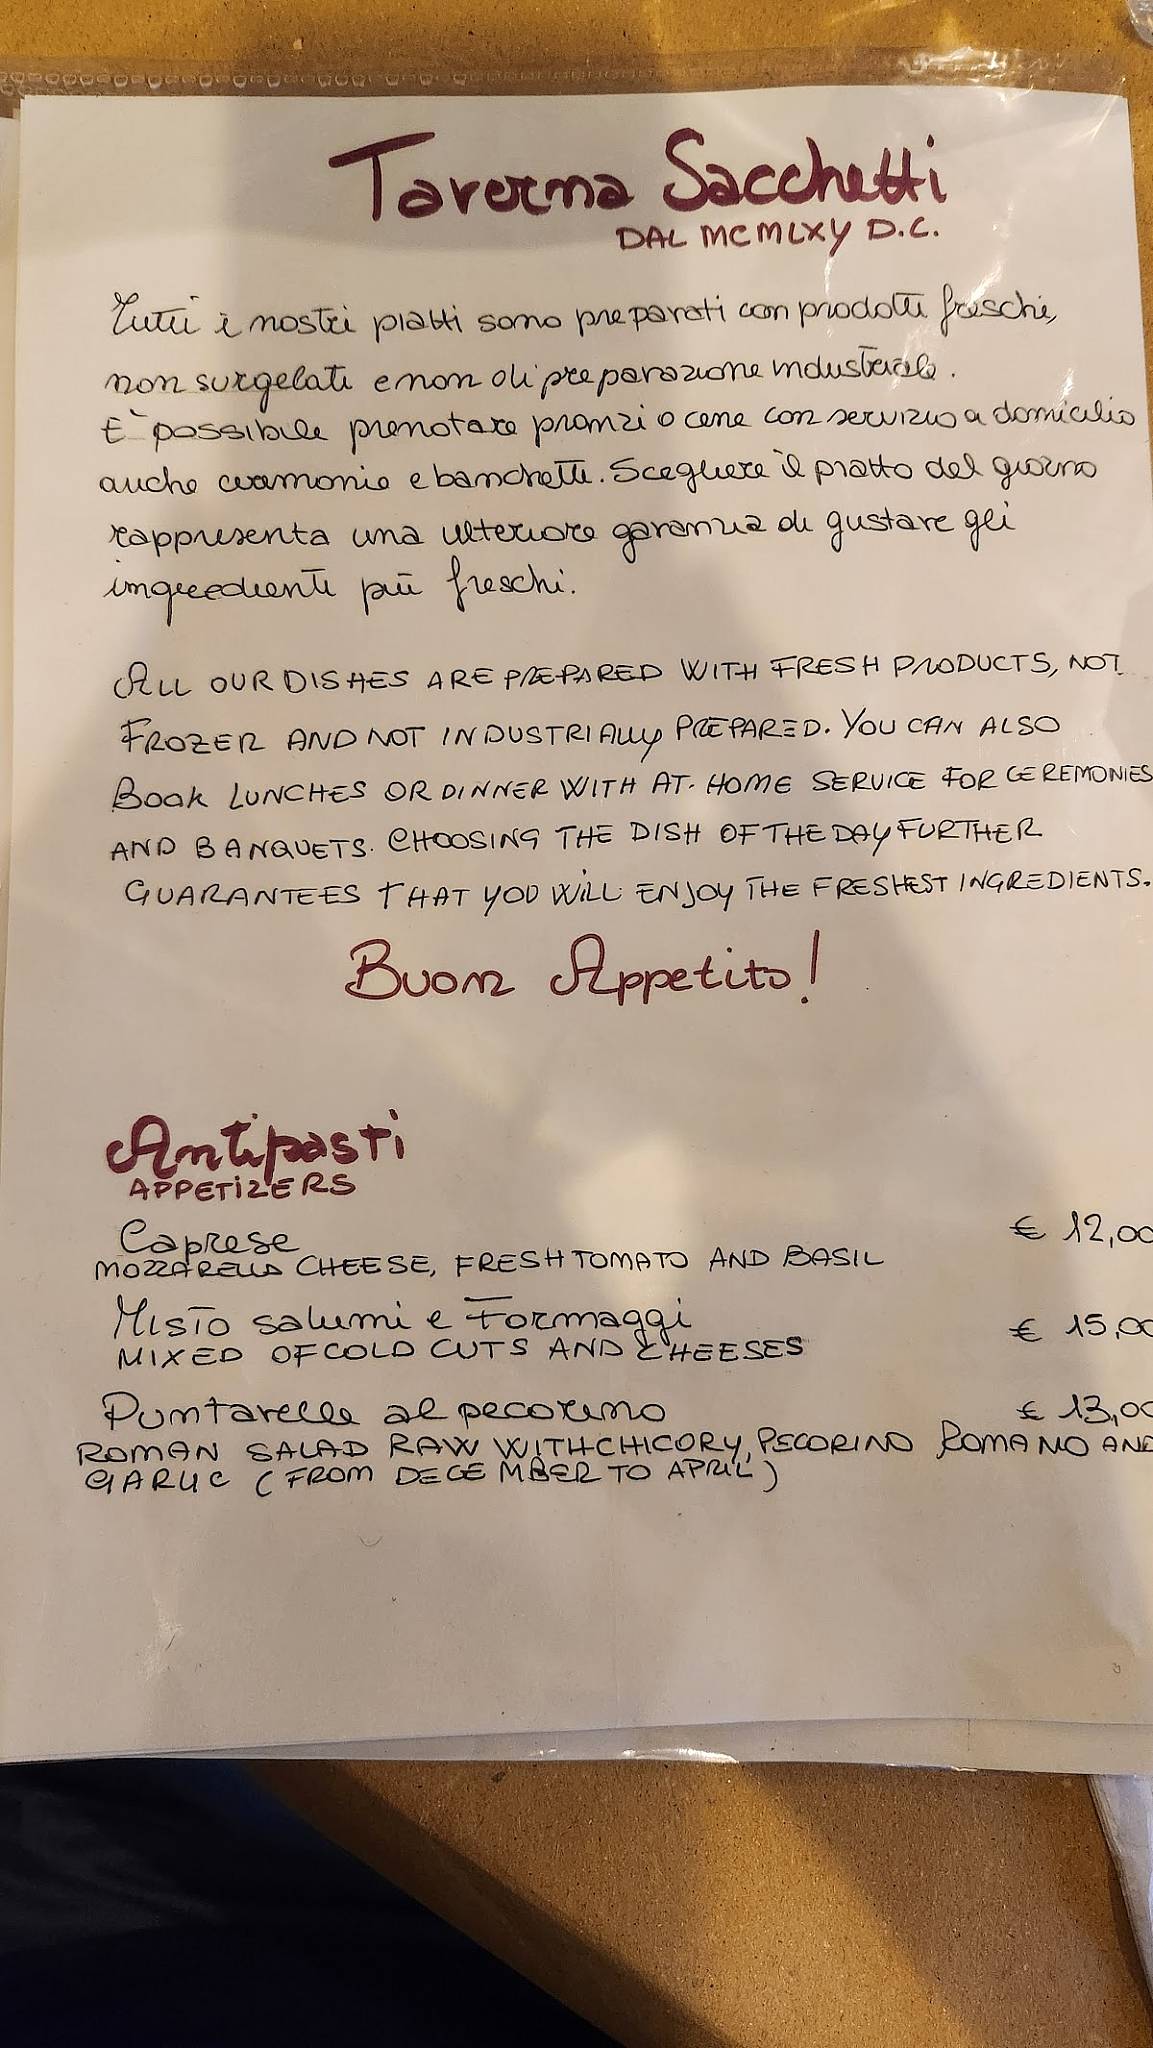 Taverna Sacchetti
DAL MCMLXV D.C.
Tutti i nostri piatti sono preparati con prodotti freschi,
non surgelati e non di preparazione industriale.
È possibile prenotare pranzi o cene con servizio a domicilio
anche cerimonie e banchetti. Scegliere il piatto del giorno
rappresenta una ulteriore garanzia di gustare gli
ingredienti più freschi.
ALL OUR DISHES ARE PREPARED WITH FRESH PRODUCTS, NOT
FROZEN AND NOT INDUSTRIALLY PREPARED. YOU CAN ALSO
BOOK LUNCHES OR DINNER WITH AT-HOME SERVICE FOR CEREMONIES
AND BANQUETS. CHOOSING THE DISH OF THE DAY FURTHER
GUARANTEES THAT YOU WILL ENJOY THE FRESHEST INGREDIENTS.
Buon Appetito!
Antipasti
APPETIZERS
Caprese € 12,00
MOZZARELLA CHEESE, FRESH TOMATO AND BASIL
Misto salumi e Formaggi € 15,00
MIXED OF COLD CUTS AND CHEESES
Puntarelle al pecorino € 13,00
ROMAN SALAD RAW WITH CHICORY, PECORINO ROMANO AND
GARLIC (FROM DECEMBER TO APRIL)